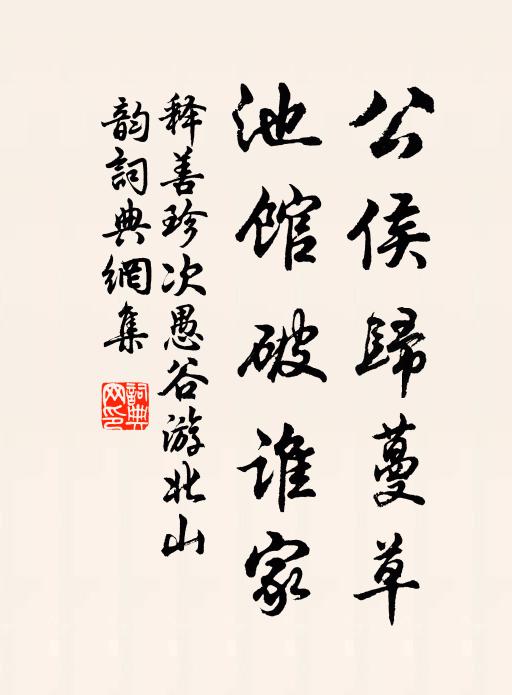 公侯歸蔓草
池馆破谁家
释善珍次愚谷游北山
韵詞典網集
詞典
网印